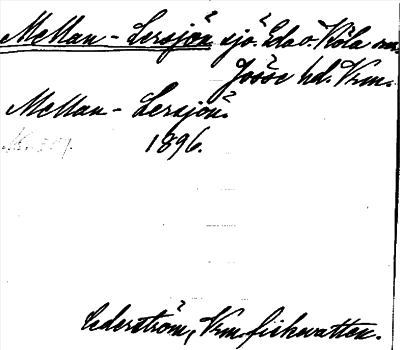 Mellan-Lersjön sjö. Eda o. Köla snr.
Jösse hd. Vrm.
Mellan-Lersjön.
1896.
Cederström, Vrm. fiskvatten.